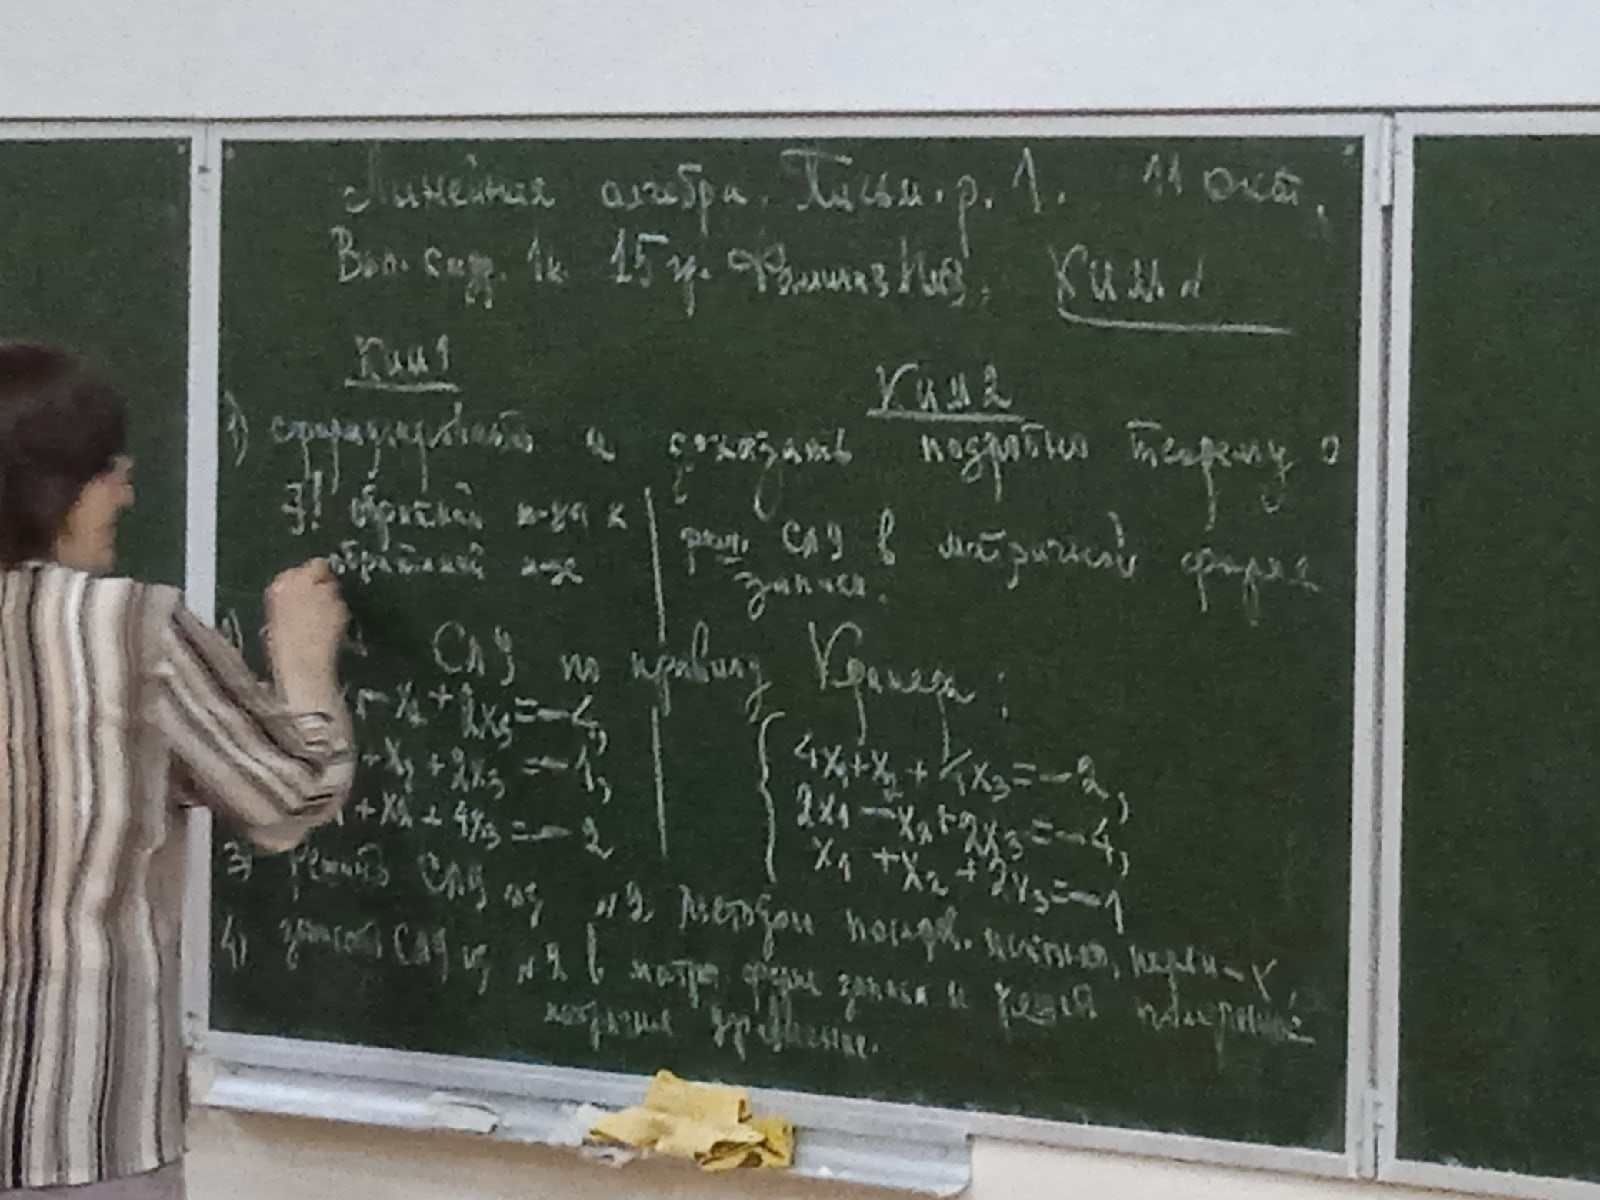 Линейная алгебра. Письм. р. 1. 11 окт.
Вып. студ. 1к. 15 гр. Фамилия И.О. КИМ 1
КИМ 1
КИМ 2
1) сформулировать и доказать подробно теорему о
∃! обратной м-цы к
обратимой м-це
реш. СЛУ в матричной форме
записи.
СЛУ по правилу Крамера:
- x2 + 2x3 = -4,
- x2 + 2x3 = -1,
+ x2 + 4x3 = -2
4x1 + x2 + 4x3 = -2,
2x1 - x2 + 2x3 = -4,
x1 + x2 + 2x3 = -1
3) решить СЛУ из №2 методом послед. исключ.
4) записать СЛУ из №2 в матр. форме записи и решить
матричное уравнение.